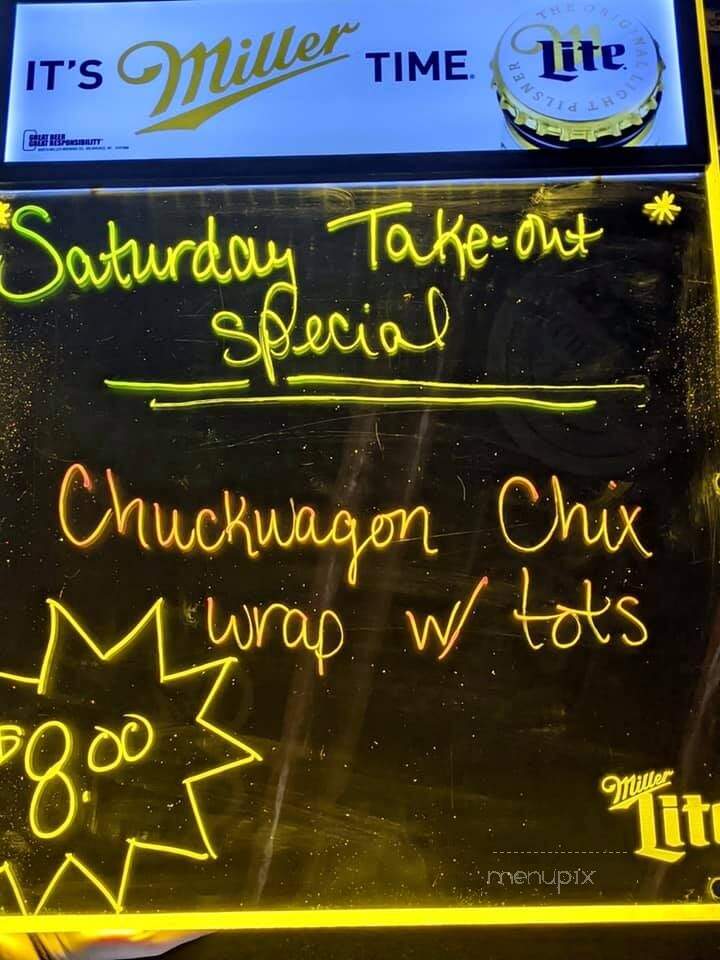 IT'S Miller TIME.
THE ORIGINAL LIGHT PILSNER
Lite
GREAT BEER
GREAT RESPONSIBILITY
* Saturday Take-out *
special
Chuckwagon Chix
wrap w/ tots
$8.00
Miller
Lite
menupix